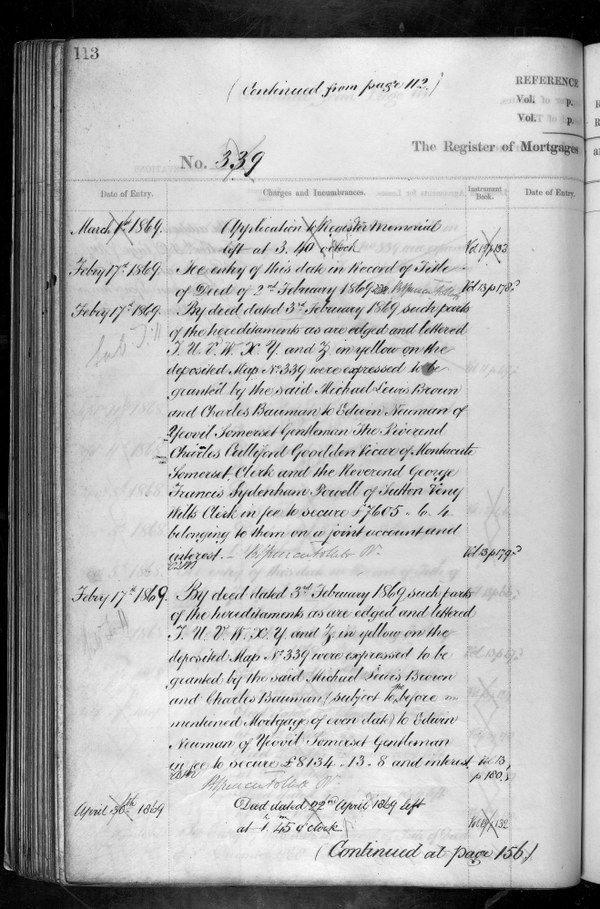 113
(Continued from page 112.)
REFERENCE
Vol. p.
Vol. p.
The Register of Mortgages
No. 339
Date of Entry. Charges and Incumbrances. Instrument Book. Date of Entry.
March 1st 1869. Application to Register Memorial
left at 3.40 o'clock Vol 19 p 133
Febry 17th 1869. See entry of this date in Record of Title
of Deed of 2nd February 1869 Vol 13 p 178
Febry 17th 1869. By deed dated 3rd February 1869 such parts
of the hereditaments as are edged and lettered
T. U. V. W. X. Y. and Z in yellow on the
deposited Map No. 339 were expressed to be
granted by the said Michael Lewis Brown
and Charles Bauman to Edwin Newman of
Yeovil Somerset Gentleman The Reverend
Charles Culliford Goodden Vicar of Montacute
Somerset Clerk and the Reverend George
Francis Sydenham Powell of Sutton Veny
Wilts Clerk in fee to secure £7605 - 6. 4
belonging to them on a joint account and
interest. Vol 13 p 179
Febry 17th 1869. By deed dated 3rd February 1869 such parts
of the hereditaments as are edged and lettered
T. U. V. W. X. Y. and Z in yellow on the
deposited Map No. 339 were expressed to be
granted by the said Michael Lewis Brown
and Charles Bauman (subject to the before
mentioned Mortgage of even date) to Edwin
Newman of Yeovil Somerset Gentleman
in fee to secure £8134 - 13 - 8 and interest Vol 13
p 180
April 30th 1869 Deed dated 22nd April 1869 left
at 1h 45m o'clock p 132
(Continued at page 156)